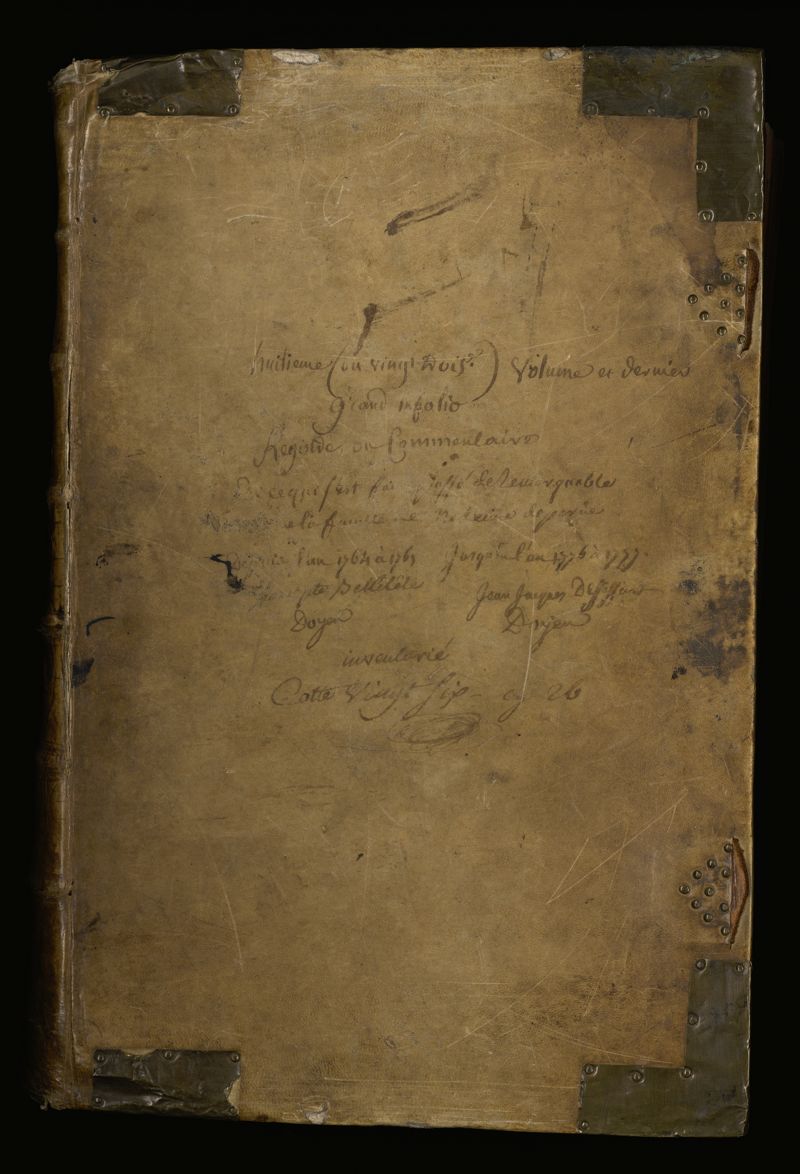 huitieme (ou vingt trois.e) Volume et dernier
Grand infolio
Registre ou Commentaire
De ce qui s'est fait et passé de Remarquable
de la faculté de medecine de paris
Depuis l'an 1764 à 1765 Jusqu'en l'an 1776 à 1777.
Bellététe Jean Jacques
Doyen Doyen
inventorié
Cotte Vingt Six cy 26